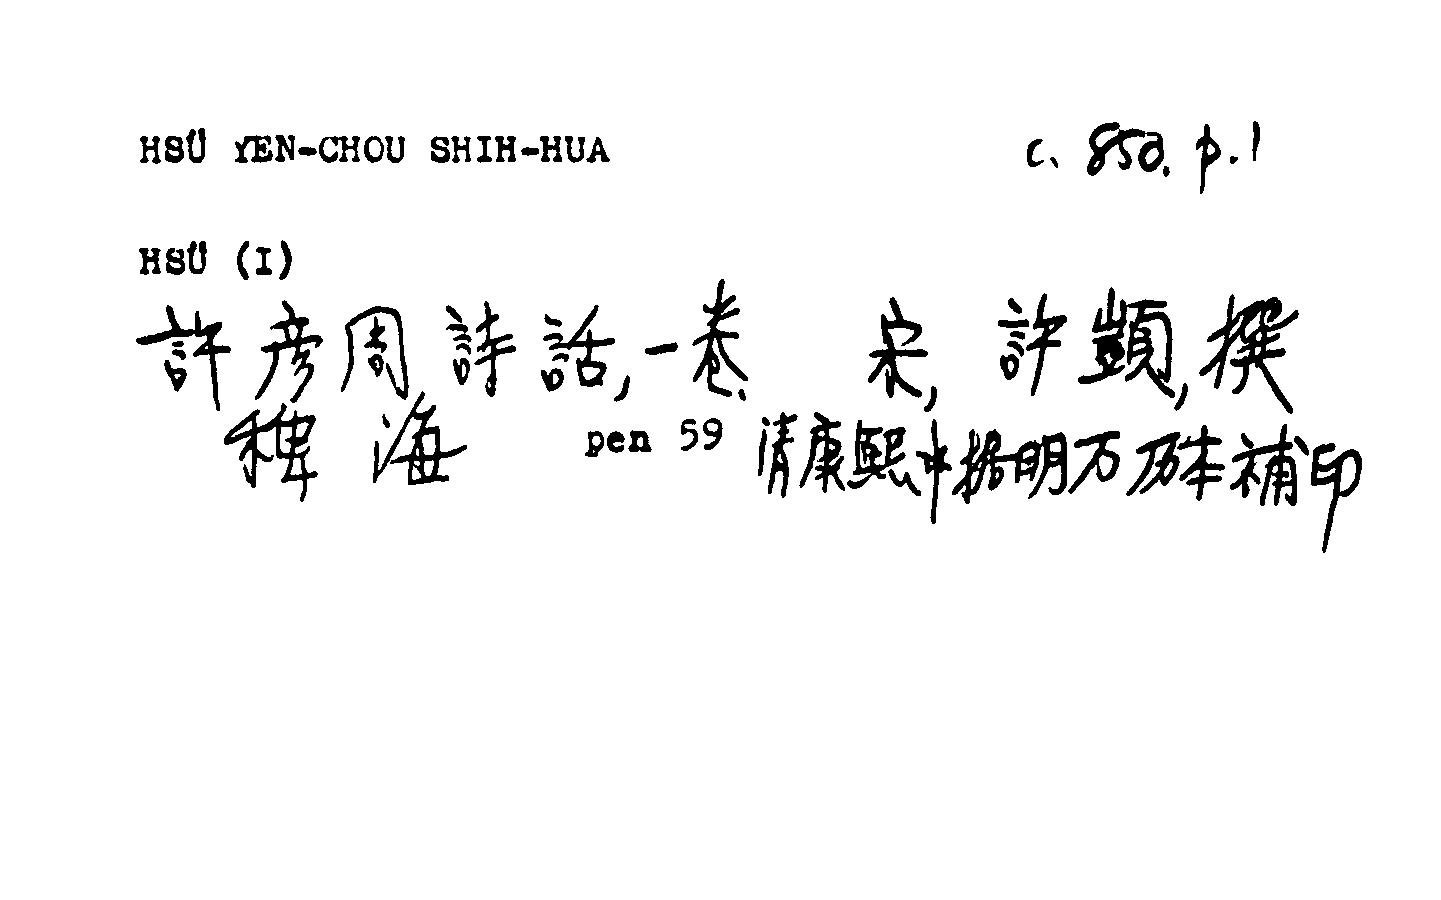 HSÜ YEN-CHOU SHIH-HUA c. 850. p.1
HSÜ (I)
許彦周詩話,一卷. 宋,許顗,撰
稗海 pen 59 清康熙中据明万历本補印